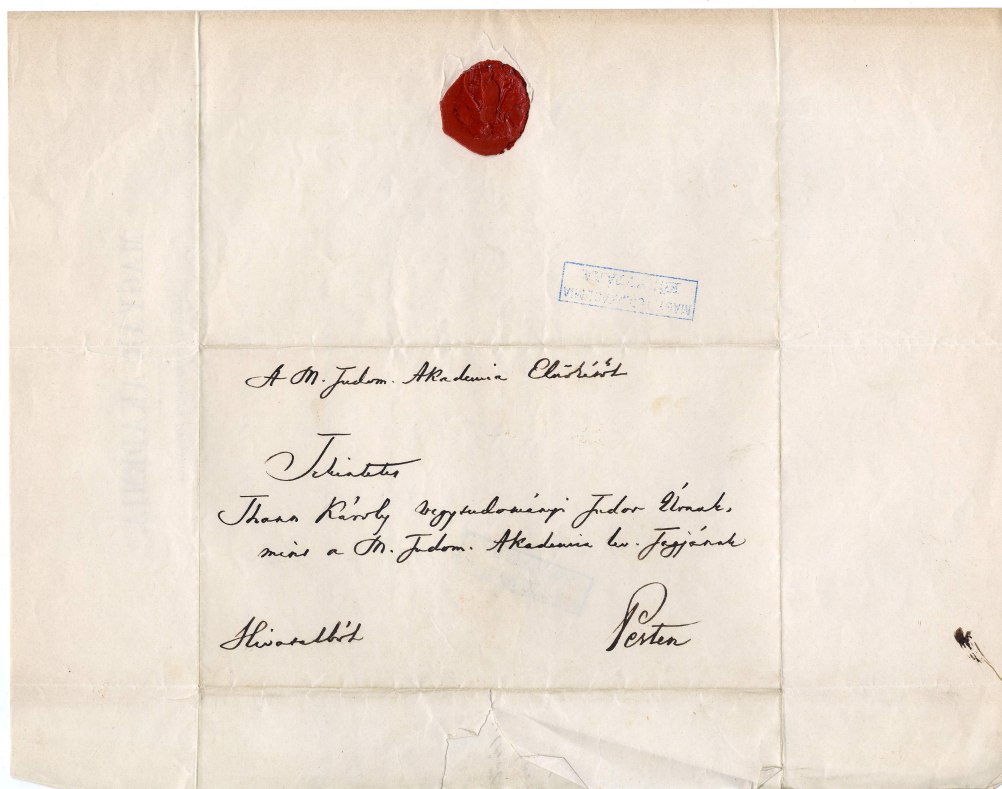 MAGY. TUD. AKADEMIA
KÖNYVTÁRA
A M. Tudom. Akademia Elnökétől
Tekintetes
Than Károly vegytudományi Tudor Úrnak,
mint a M. Tudom. Akademia lev. Tagjának
Hivatalból
Pesten